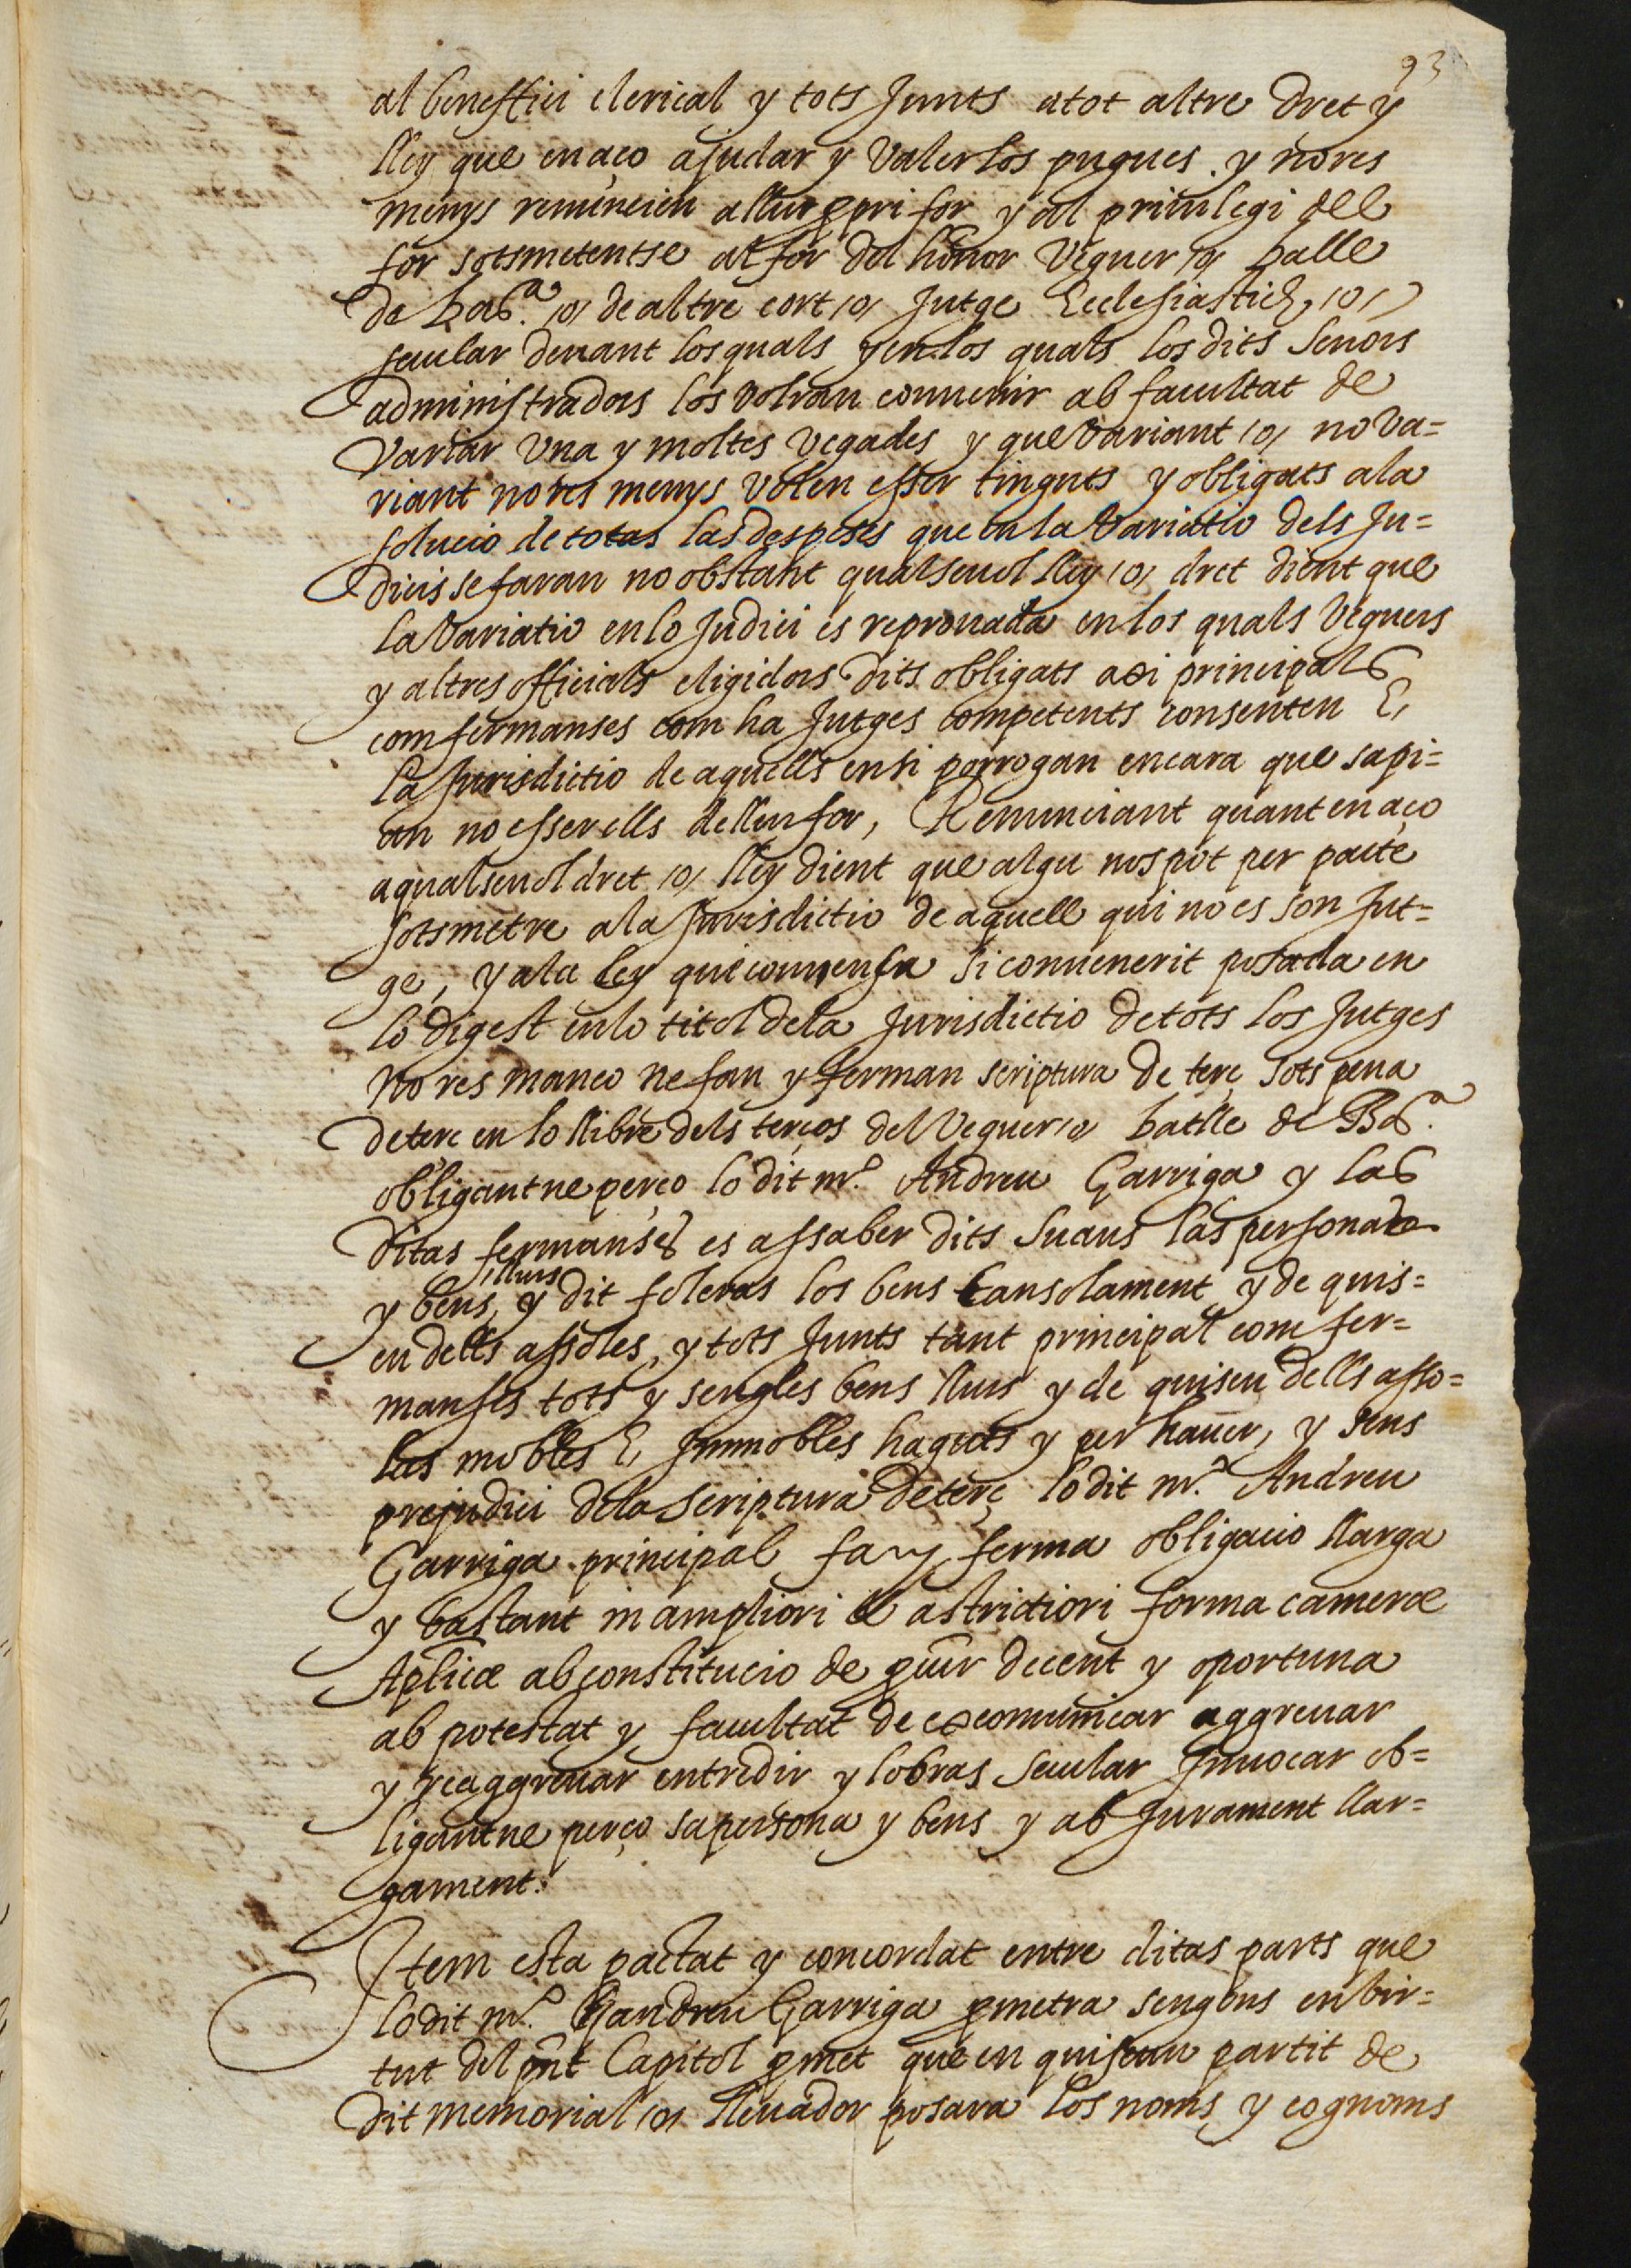 93
al beneffici clerical y tots Junts atot altre dret y
lley que enaço ajudar y valerlos pugues. y nores
menys renuncien allur ppri for y al priuilegi del
for sotsmetentse al for del honor Veguer /o/ balle
de Bar.ª /o/ de altre cort /o/ Jutge Ecclesiastich /o/
secular deuant losquals y enlos quals losdits Senors
administradors los volran conuenir ab facultat de
Variar Vna y moltes vegades y que variant /o/ no va=
riant nores menys volen esser tinguts y obligats ala
solucio de totas las despeses que en la variatio dels Ju=
dicis se faran no obstant qualseuol lley /o/ dret dient que
la variatio en lo Judici es reprouada en los quals Veguers
y altres officials eligidors dits obligats axi principals
com fermanses com ha Jutges competents consenten E,
la Jurisdictio de aquells ensi porrogan encara que sapi=
an no esser ells de llur for, Renunciant quant en aço
a qualseuol dret /o/ lley dient que algu nos pot per pacte
sotsmetre ala Jurisdictio de aquell qui no es son Jut=
ge, y ala ley que comensa Si conuenerit posada en
lo digest en lo titol dela Jurisdictio de tots los Jutges
No res manco ne fan y ferman scriptura de terç sots pena
de terc en lo llibre dels terços del Veguer /o/ batlle de Bar.ª
obligantne perço lo dit mº. Andreu Garriga y las
ditas fermanses es assaber dits Suaus las personas
y bens, /llurs y dit foleras los bens tansolament y de quis=
cu dells assoles, y tots Junts tant principal com fer=
manses tots y sengles bens llurs y de quiscu dells asso=
les mobles E, Immobles haguts y per hauer, y sens
prejudici dela Scriptura de terç lodit mº. Andreu
Garriga principal fa y ferma obligacio llarga
y bastant in ampliori & astrictiori forma cameræ
Aplicæ ab constitucio de pur decent y oportuna
ab potestat y facultat de excomunicar aggreuar
y reaggreuar entredir y lo bras Secular Inuocar ob=
ligantne perço sa persona y bens y ab Jurament llar=
gament.
Item esta pactat y concordat entre ditas parts que
lodit mº. Handreu Garriga pmetra sengons en bir=
tut del pnt Capitol pmet que en quiscun partit de
dit memorial /o/ lleuador posara los noms y cognoms